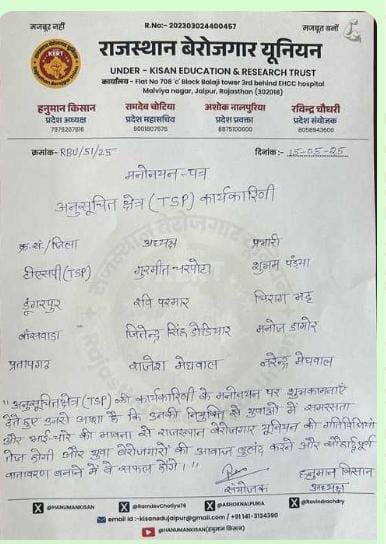 मजबूर नहीं R.No:- 202303024400457 मजबूत बनो
KERT
राजस्थान बेरोजगार यूनियन
UNDER - KISAN EDUCATION & RESEARCH TRUST
कार्यालय - Flat No 708 'c' Block Balaji tower 3rd behind EHCC hospital
Malviya nagar, Jaipur, Rajasthan (302018)
हनुमान किसान रामदेव चोटिया अशोक नालपुरिया रविन्द्र चौधरी
प्रदेश अध्यक्ष प्रदेश महासचिव प्रदेश प्रवक्ता प्रदेश संयोजक
7976207816 9001807676 8875100600 8058943600
क्रमांक- RBU/51/25 दिनांक:- 15-05-25
मनोनयन-पत्र
अनुसूचित क्षेत्र (TSP) कार्यकारिणी
क्र.सं./जिला अध्यक्ष प्रभारी
टीएसपी (TSP) गुरमीत चरपोटा शुभम पंड्या
डूंगरपुर रवि परमार चिराग भट्ट
बांसवाडा जितेन्द्र सिंह डोडियार मनोज डामोर
प्रतापगढ़ राजेश मेघवाल नरेन्द्र मेघवाल
"अनुसूचित क्षेत्र (TSP) की कार्यकारिणी के मनोनयन पर शुभकामनाएँ
देते हुए उनसे आशा है कि उनकी नियुक्ति से युवाओं में समरसता
और भाई-चारे की भावना से राजस्थान बेरोजगार यूनियन की गतिविधियां
तेज होगी और युवा बेरोजगारों की आवाज बुलंद करने और सौहार्द्रपूर्ण
वातावरण बनाने में वे सफल होंगे।"
संयोजक हनुमान किसान
अध्यक्ष
@HANUMANKISAN @RamdevChotiya76 @ASHOKNALPURIA @Ravindrachdry
email id :-kisanedujaipur@gmail.com / +91 141-3134390
@HANUMANKISAN(हनुमान किसान)